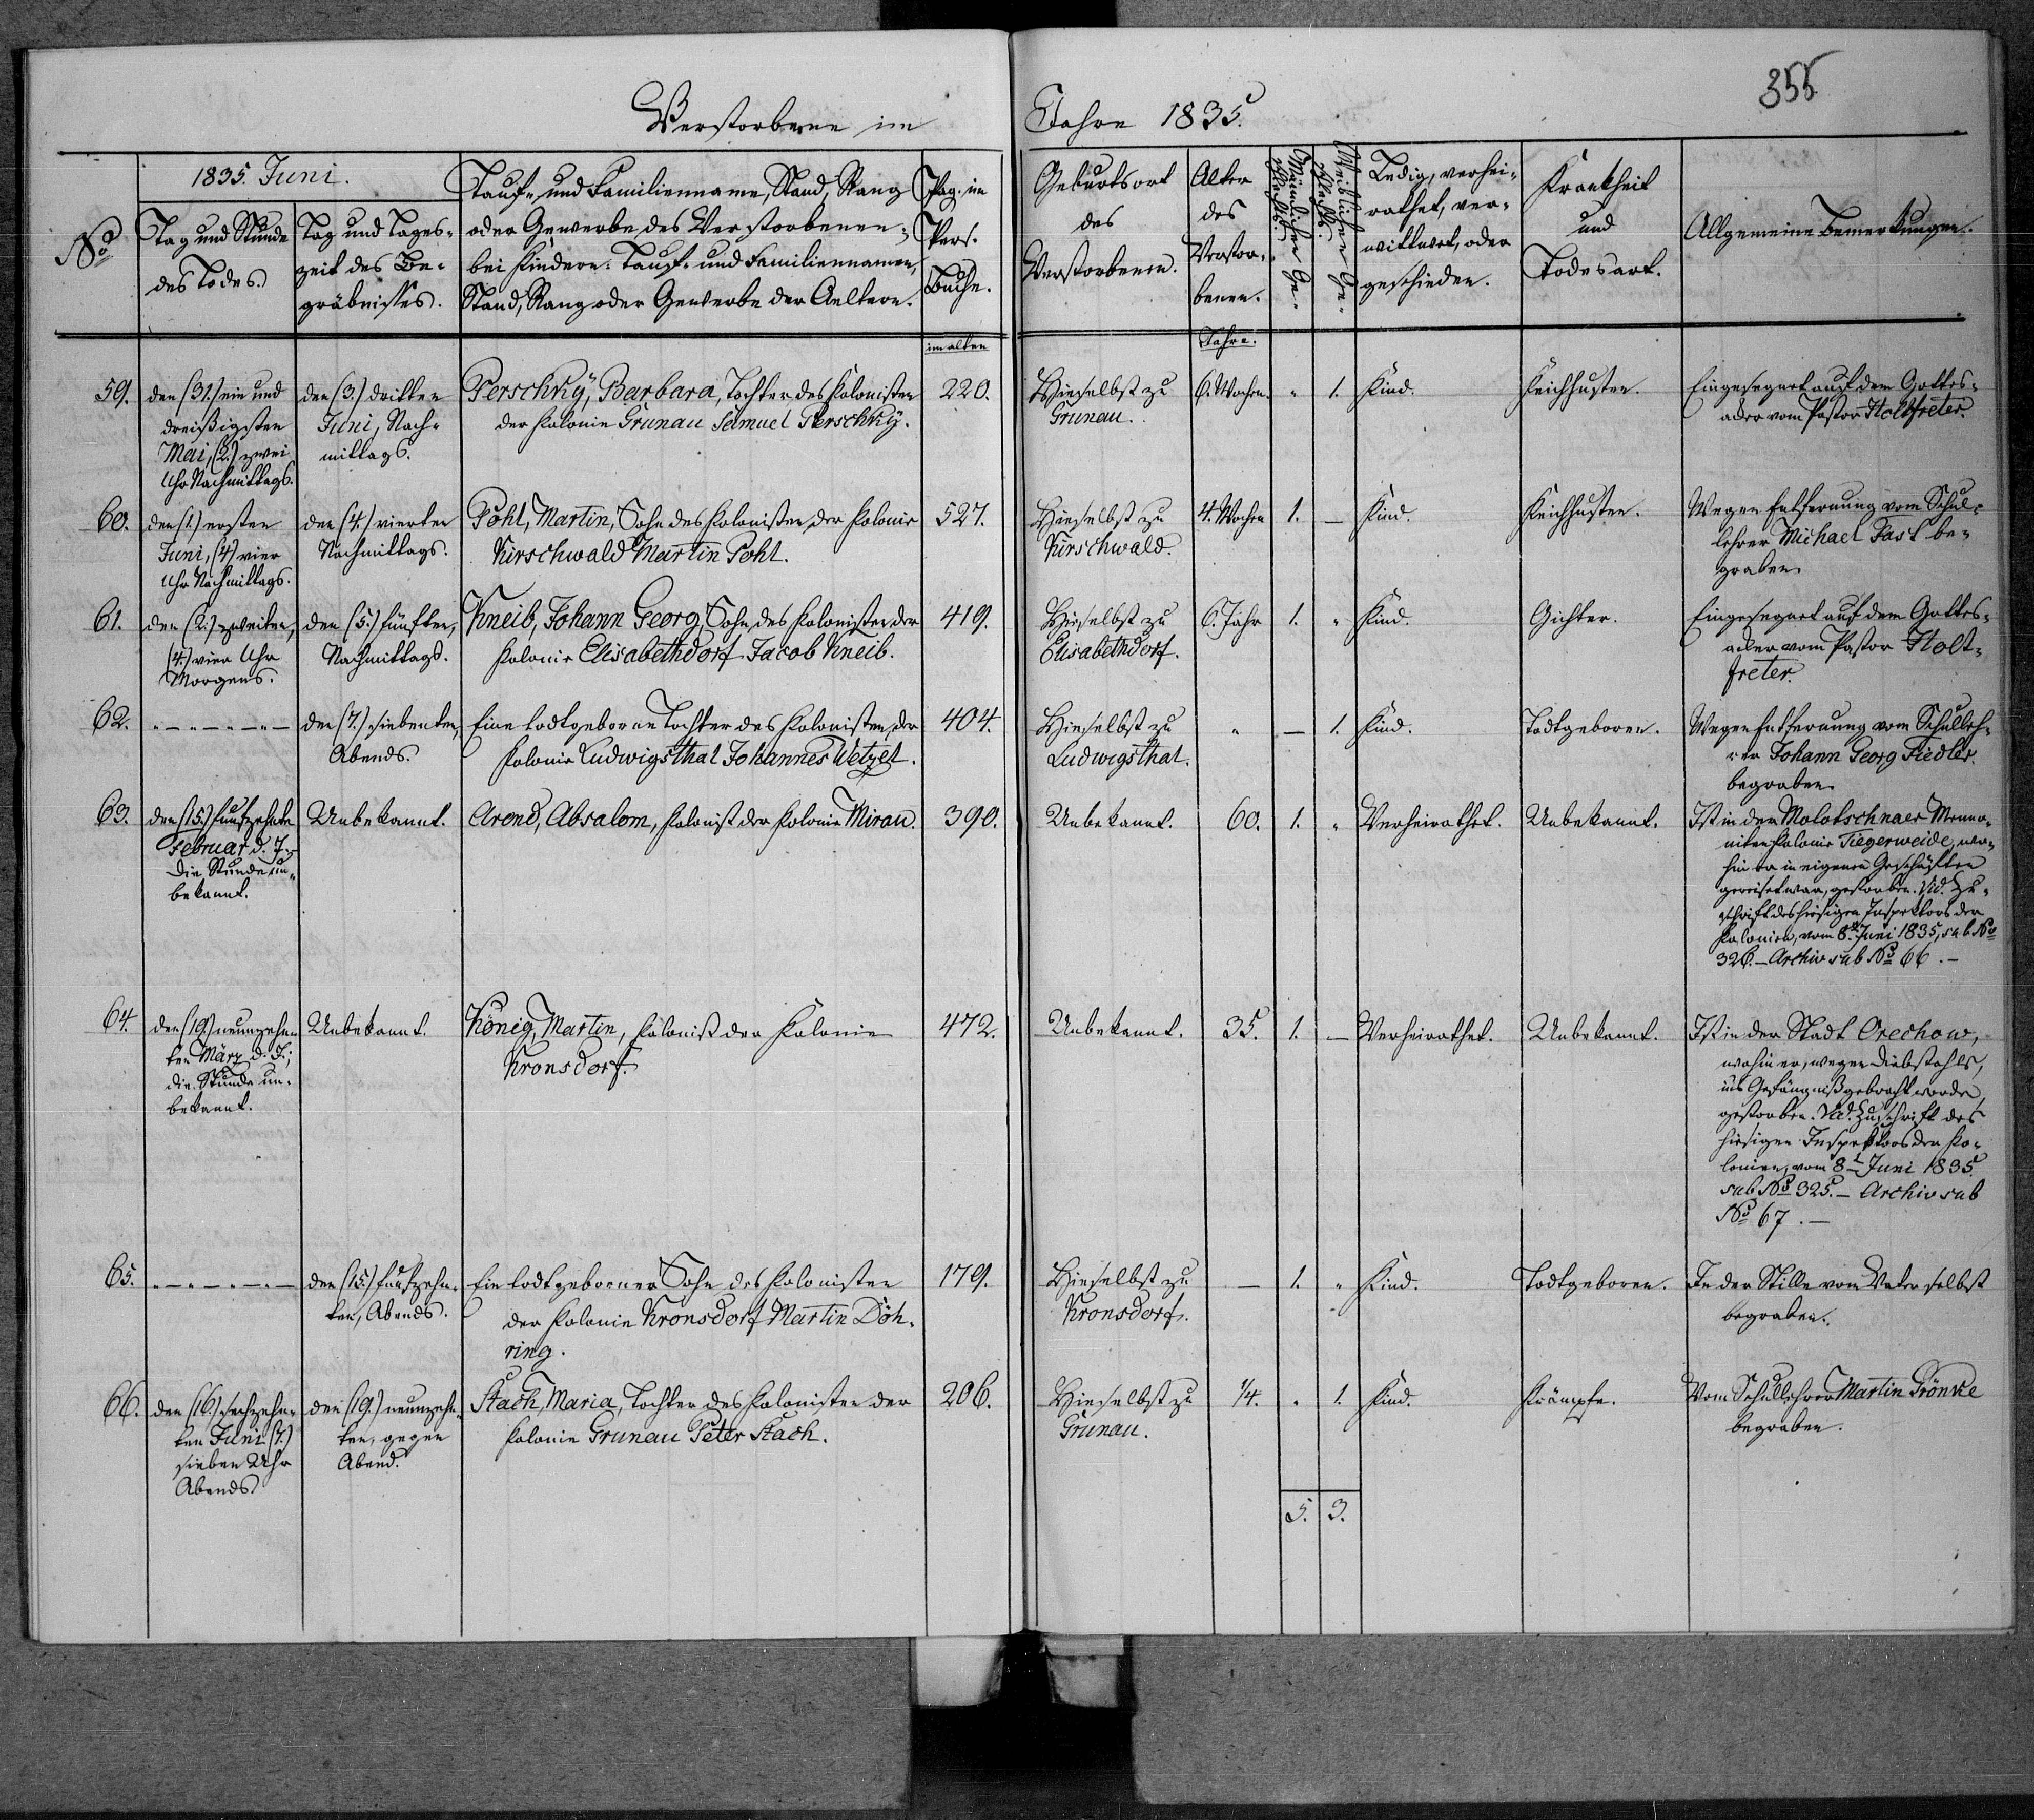 355
Verstorbene im Jahre 1835.
No
1835. Juni.
Tag und Stunde
des Todes.
Tag und Tages-
zeit des Be-
gräbnisses.
Tauf- und Familienname, Stand, Rang
oder Gewerbe des Verstorbenen;
bei Kindern: Tauf- und Familiennamen,
Stand, Rang oder Gewerbe der Aeltern.
Pag. im
Pers.
Buche.
Geburtsort
des
Verstorbenen.
Alter
des
Verstor-
benen.
Männlichen Ge-
schlechts.
Weiblichen Ge-
schlechts.
Ledig, verhei-
rathet, ver-
wittwet, oder
geschieden.
Krankheit
und
Todesart.
Allgemeine Bemerkungen.
im alten
Jahre.
59.
den (31.) ein und
dreißigsten
Mai, (2.) zwei
Uhr Nachmittags.
den (3.) dritten
Juni, Nach-
mittags.
Perschky, Barbara, Tochter des Kolonisten
der Kolonie Grunau Samuel Perschky.
220.
Hieselbst zu
Grunau.
6. Wochen.
"
1.
Kind.
Keichhusten.
Eingesegnet auf dem Gottes-
acker vom Pastor Holtfreter.
60.
den (1.) ersten
Juni, (4.) vier
Uhr Nachmittags.
den (4.) vierten
Nachmittags.
Pohl, Martin, Sohn des Kolonisten der Kolonie
Kirschwald Martin Pohl.
527.
Hieselbst zu
Kirschwald.
4. Wochen
1.
—
Kind.
Keichhusten.
Wegen Entfernung vom Schul-
lehrer Michael Jast be-
graben.
61.
den (2.) zweiten,
(4.) vier Uhr
Morgens.
den (5.) fünften,
Nachmittags.
Kneib, Johann Georg, Sohn des Kolonisten der
Kolonie Elisabethdorf Jacob Kneib.
419.
Hieselbst zu
Elisabethdorf.
6. Jahr
1.
"
Kind.
Gichter.
Eingesegnet auf dem Gottes-
acker vom Pastor Holt-
freter.
62.
" — " — " — " —
den (7.) siebenten,
Abends.
Eine todtgeborne Tochter des Kolonisten der
Kolonie Ludwigsthal Johannes Wetzel.
404.
Hieselbst zu
Ludwigsthal.
"
—
1.
Kind.
Todtgeboren.
Wegen Entfernung vom Schulleh-
rer Johann Georg Fiedler
begraben.
63.
den (15.) funfzehnten
Februar d. J.
die Stunde un-
bekannt.
Unbekannt.
Arend, Absalom, Kolonist der Kolonie Mirau.
390.
Unbekannt.
60.
1.
"
Verheirathet.
Unbekannt.
Ist in der Molotschnaer Menno-
niten Kolonie Tiegerweide, wo-
hin er in eigenen Geschäften
gereiset war, gestorben. Vid. Zu-
schrift des hiesigen Inspektors der
Kolonien, vom 8t Juni 1835, sub No
326. — Archiv sub No 66. —
64.
den (19.) neunzehn-
ten März d. J.;
die Stunde un-
bekannt.
Unbekannt.
König, Martin, Kolonist der Kolonie
Kronsdorf.
472.
Unbekannt.
35.
1.
—
Verheirathet.
Unbekannt.
Ist in der Stadt Orechow,
wohin er, wegen Diebstahls,
ins Gefängniß gebracht worden,
gestorben. Vid. Zuschrift des
hiesigen Inspektors der Ko-
lonien, vom 8t Juni 1835.
sub No 325. — Archiv sub
No 67. —
65.
" — " — " — " —
den (15.) funfzehn-
ten, Abends.
Ein todtgeborner Sohn des Kolonisten
der Kolonie Kronsdorf Martin Döh-
ring.
179.
Hieselbst zu
Kronsdorf.
—
1.
"
Kind.
Todtgeboren.
In der Stille vom Vater selbst
begraben.
66.
den (16.) sechzehn-
ten Juni (7.)
sieben Uhr
Abends.
den (19.) neunzehn-
ten, gegen
Abend.
Stach, Maria, Tochter des Kolonisten der
Kolonie Grunau Peter Stach.
206.
Hieselbst zu
Grunau.
1/4.
"
1.
Kind.
Krämpfe.
Vom Schullehrer Martin Trönke
begraben.
5.
3.